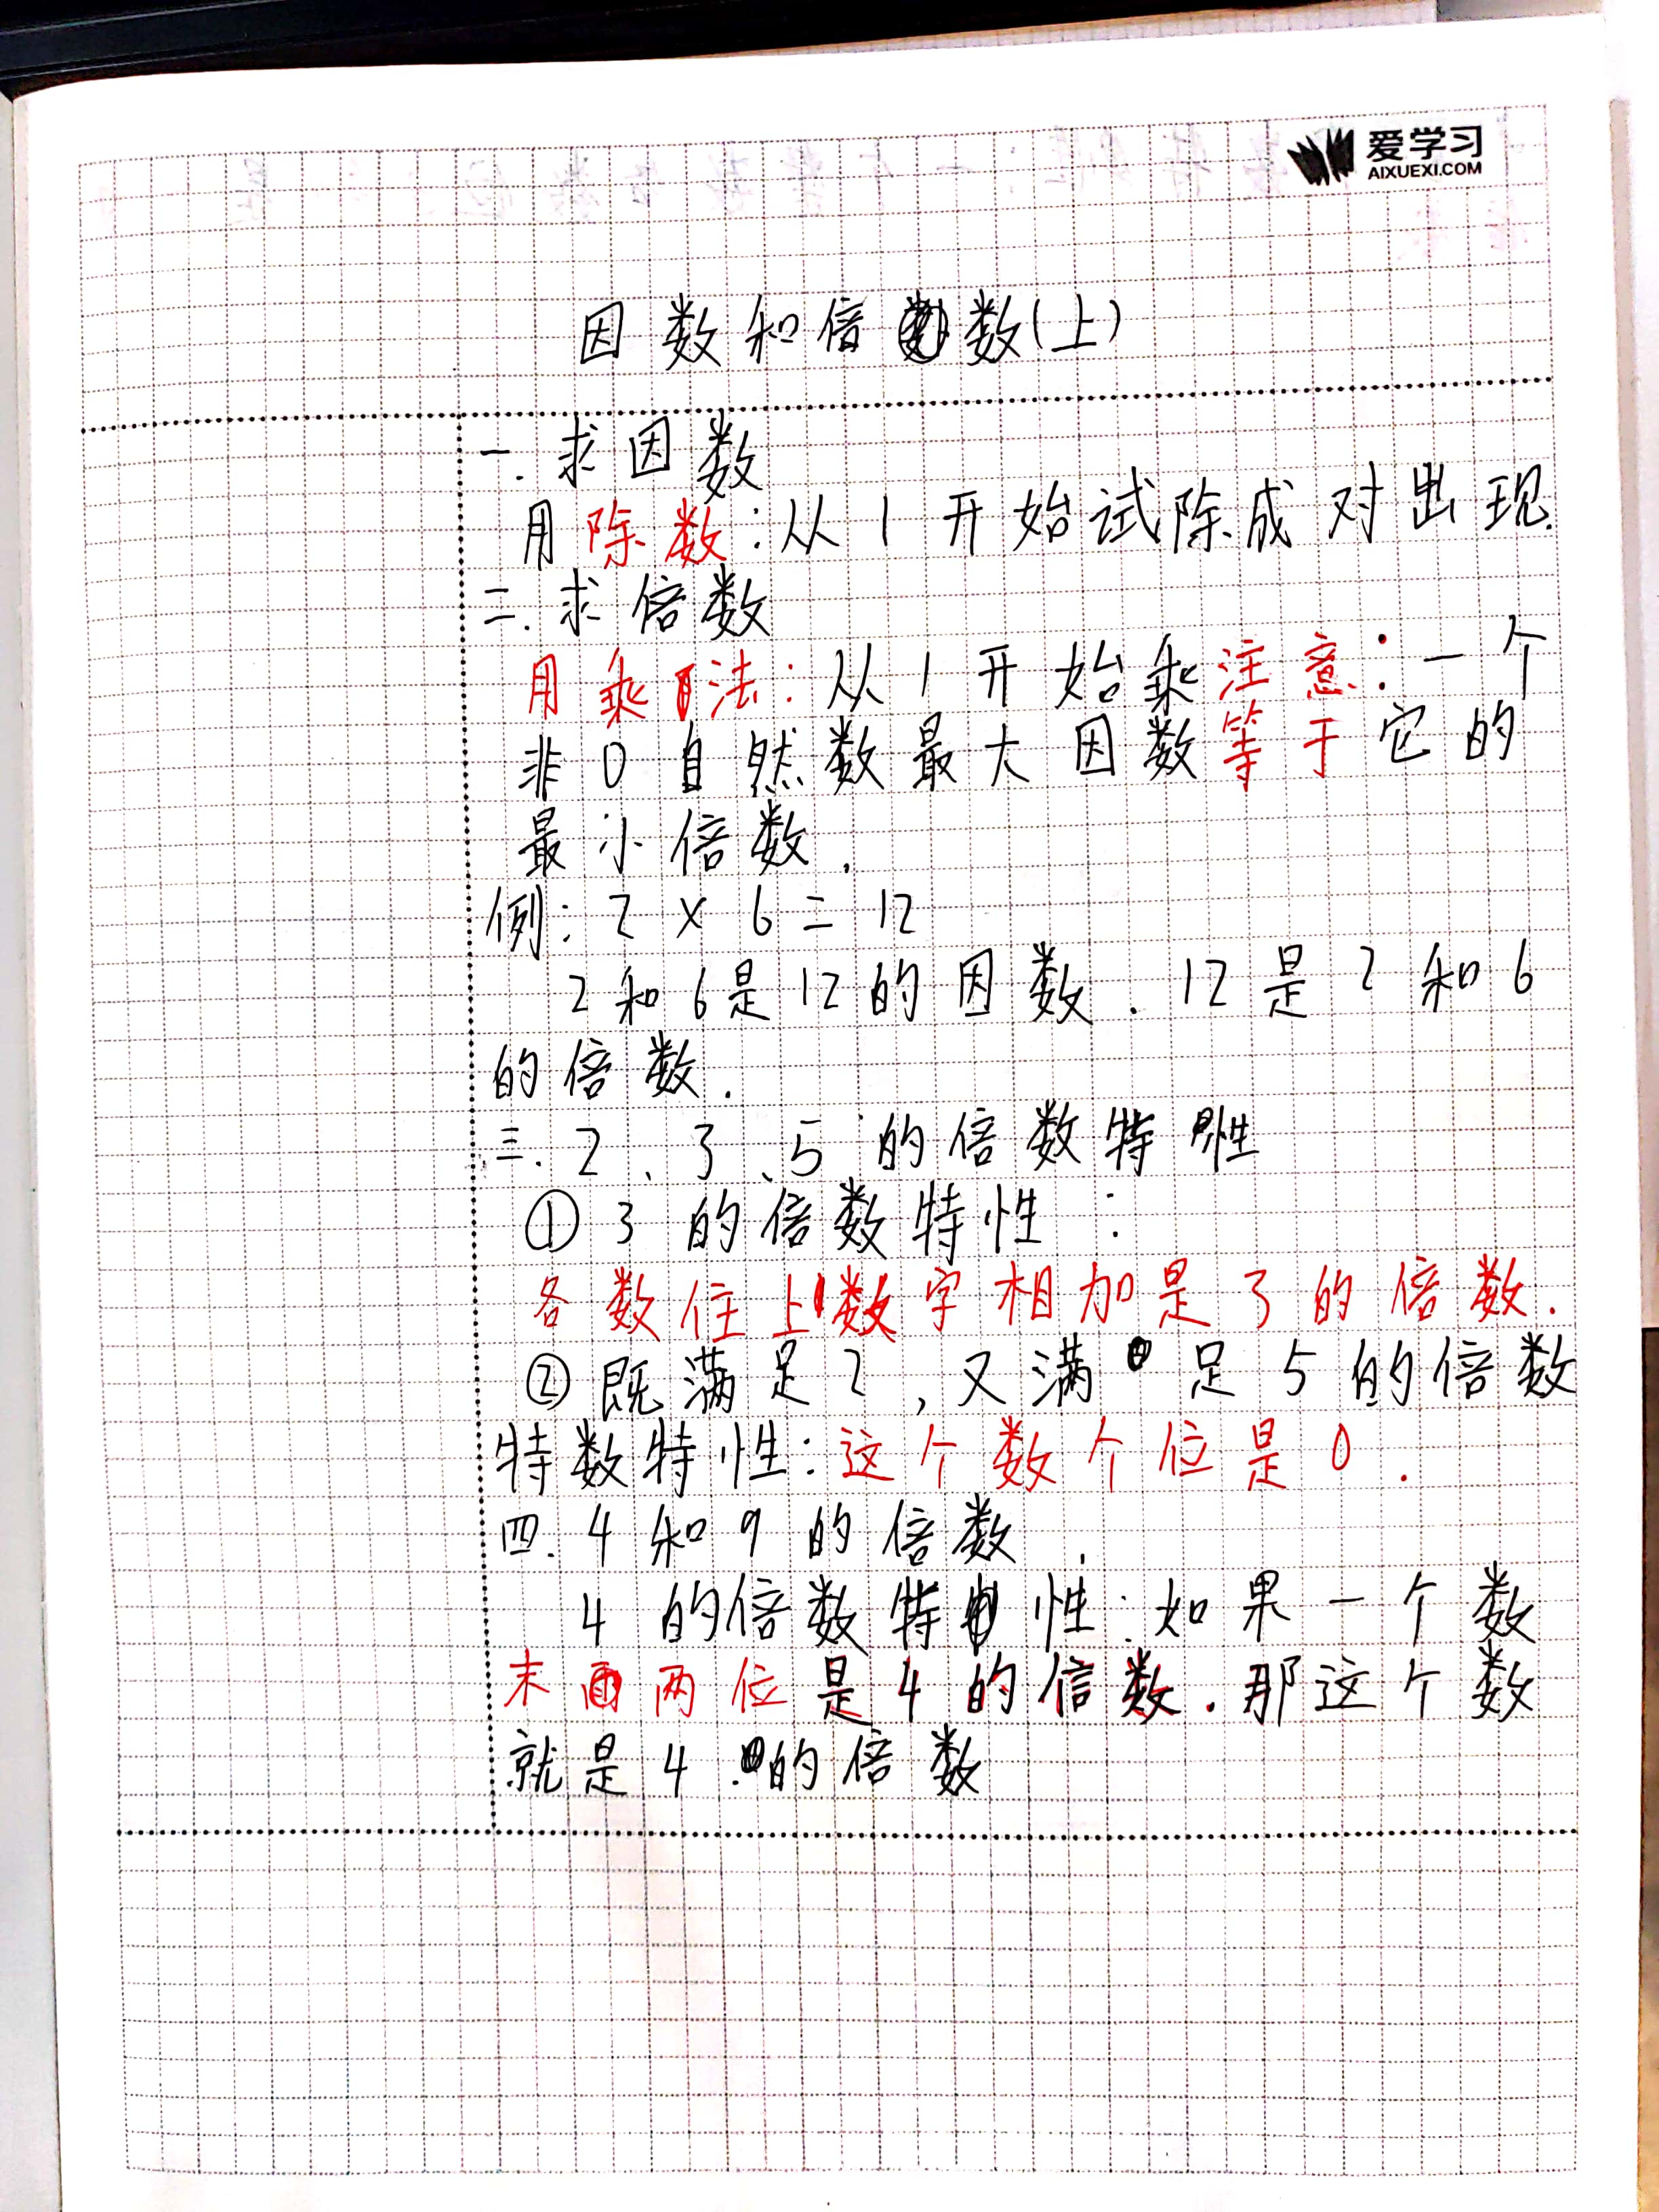 爱学习
AIXUEXI.COM
因数和倍数(上)
一.求因数
用除数:从1开始试除成对出现.
二.求倍数
用乘法:从1开始乘注意:一个
非0自然数最大因数等于它的
最小倍数.
例:2×6=12
2和6是12的因数.12是2和6
的倍数.
三.2、3、5的倍数特性
①3的倍数特性:
各数位上数字相加是3的倍数.
②既满足2,又满足5的倍数
特数特性:这个数个位是0.
四.4和9的倍数.
4的倍数特性:如果一个数
末两位是4的倍数.那这个数
就是4的倍数